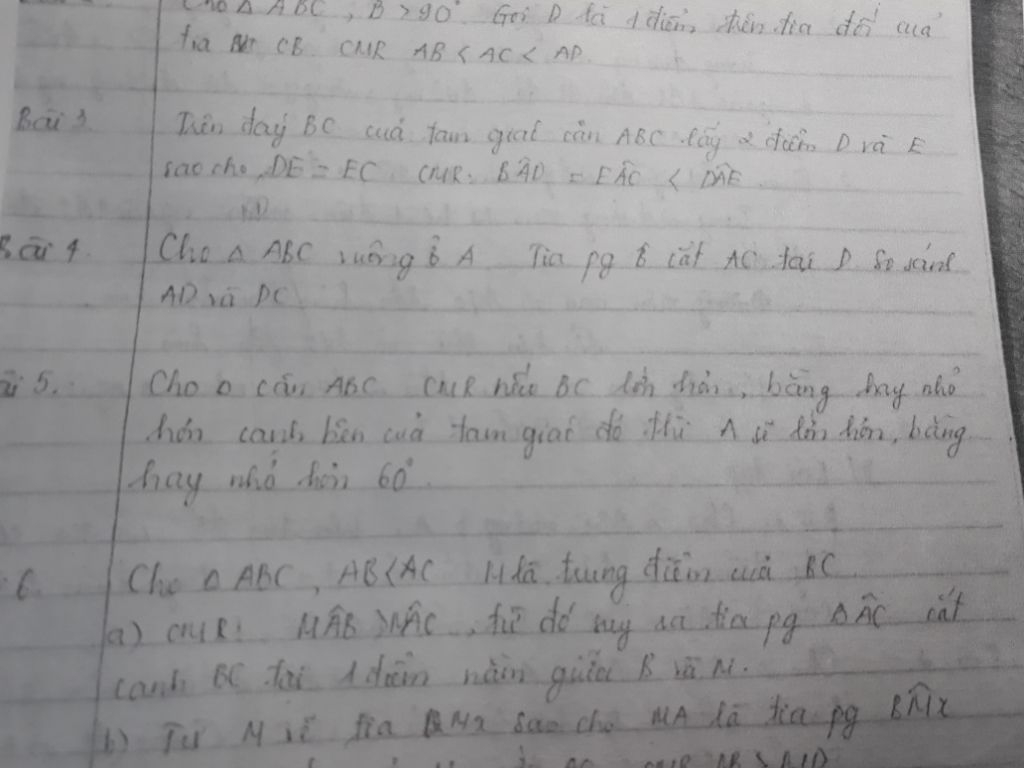 Cho Δ ABC, B > 90° Gọi D là 1 điểm trên tia đối của
tia CB CMR AB < AC < AD
Bài 3. Trên đáy BC của tam giác cân ABC lấy 2 điểm D và E
sao cho DE = EC CMR. BÂD = EÂC < DÂE
Bài 4. Cho Δ ABC vuông ở A Tia pg B̂ cắt AC tại D So sánh
AD và DC
5. Cho Δ cân ABC CMR nếu BC lớn hơn, bằng hay nhỏ
hơn cạnh bên của tam giác đó thì A sẽ lớn hơn, bằng
hay nhỏ hơn 60°
6. Cho Δ ABC, AB < AC M là trung điểm của BC
a) CMR: MÂB > MÂC, từ đó suy ra tia pg BÂC cắt
cạnh BC tại 1 điểm nằm giữa B và M.
b) Từ M vẽ tia Mx sao cho MA là tia pg BM̂x
CMR AB > MD